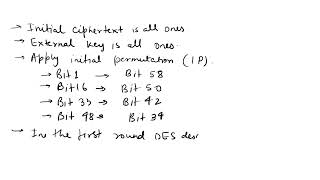 → Initial ciphertext is all ones
→ External key is all ones.
→ Apply initial permutation (IP).
→ Bit 1 → Bit 58
→ Bit 16 → Bit 50
→ Bit 33 → Bit 42
→ Bit 48 → Bit 34
→ In the first round DES des